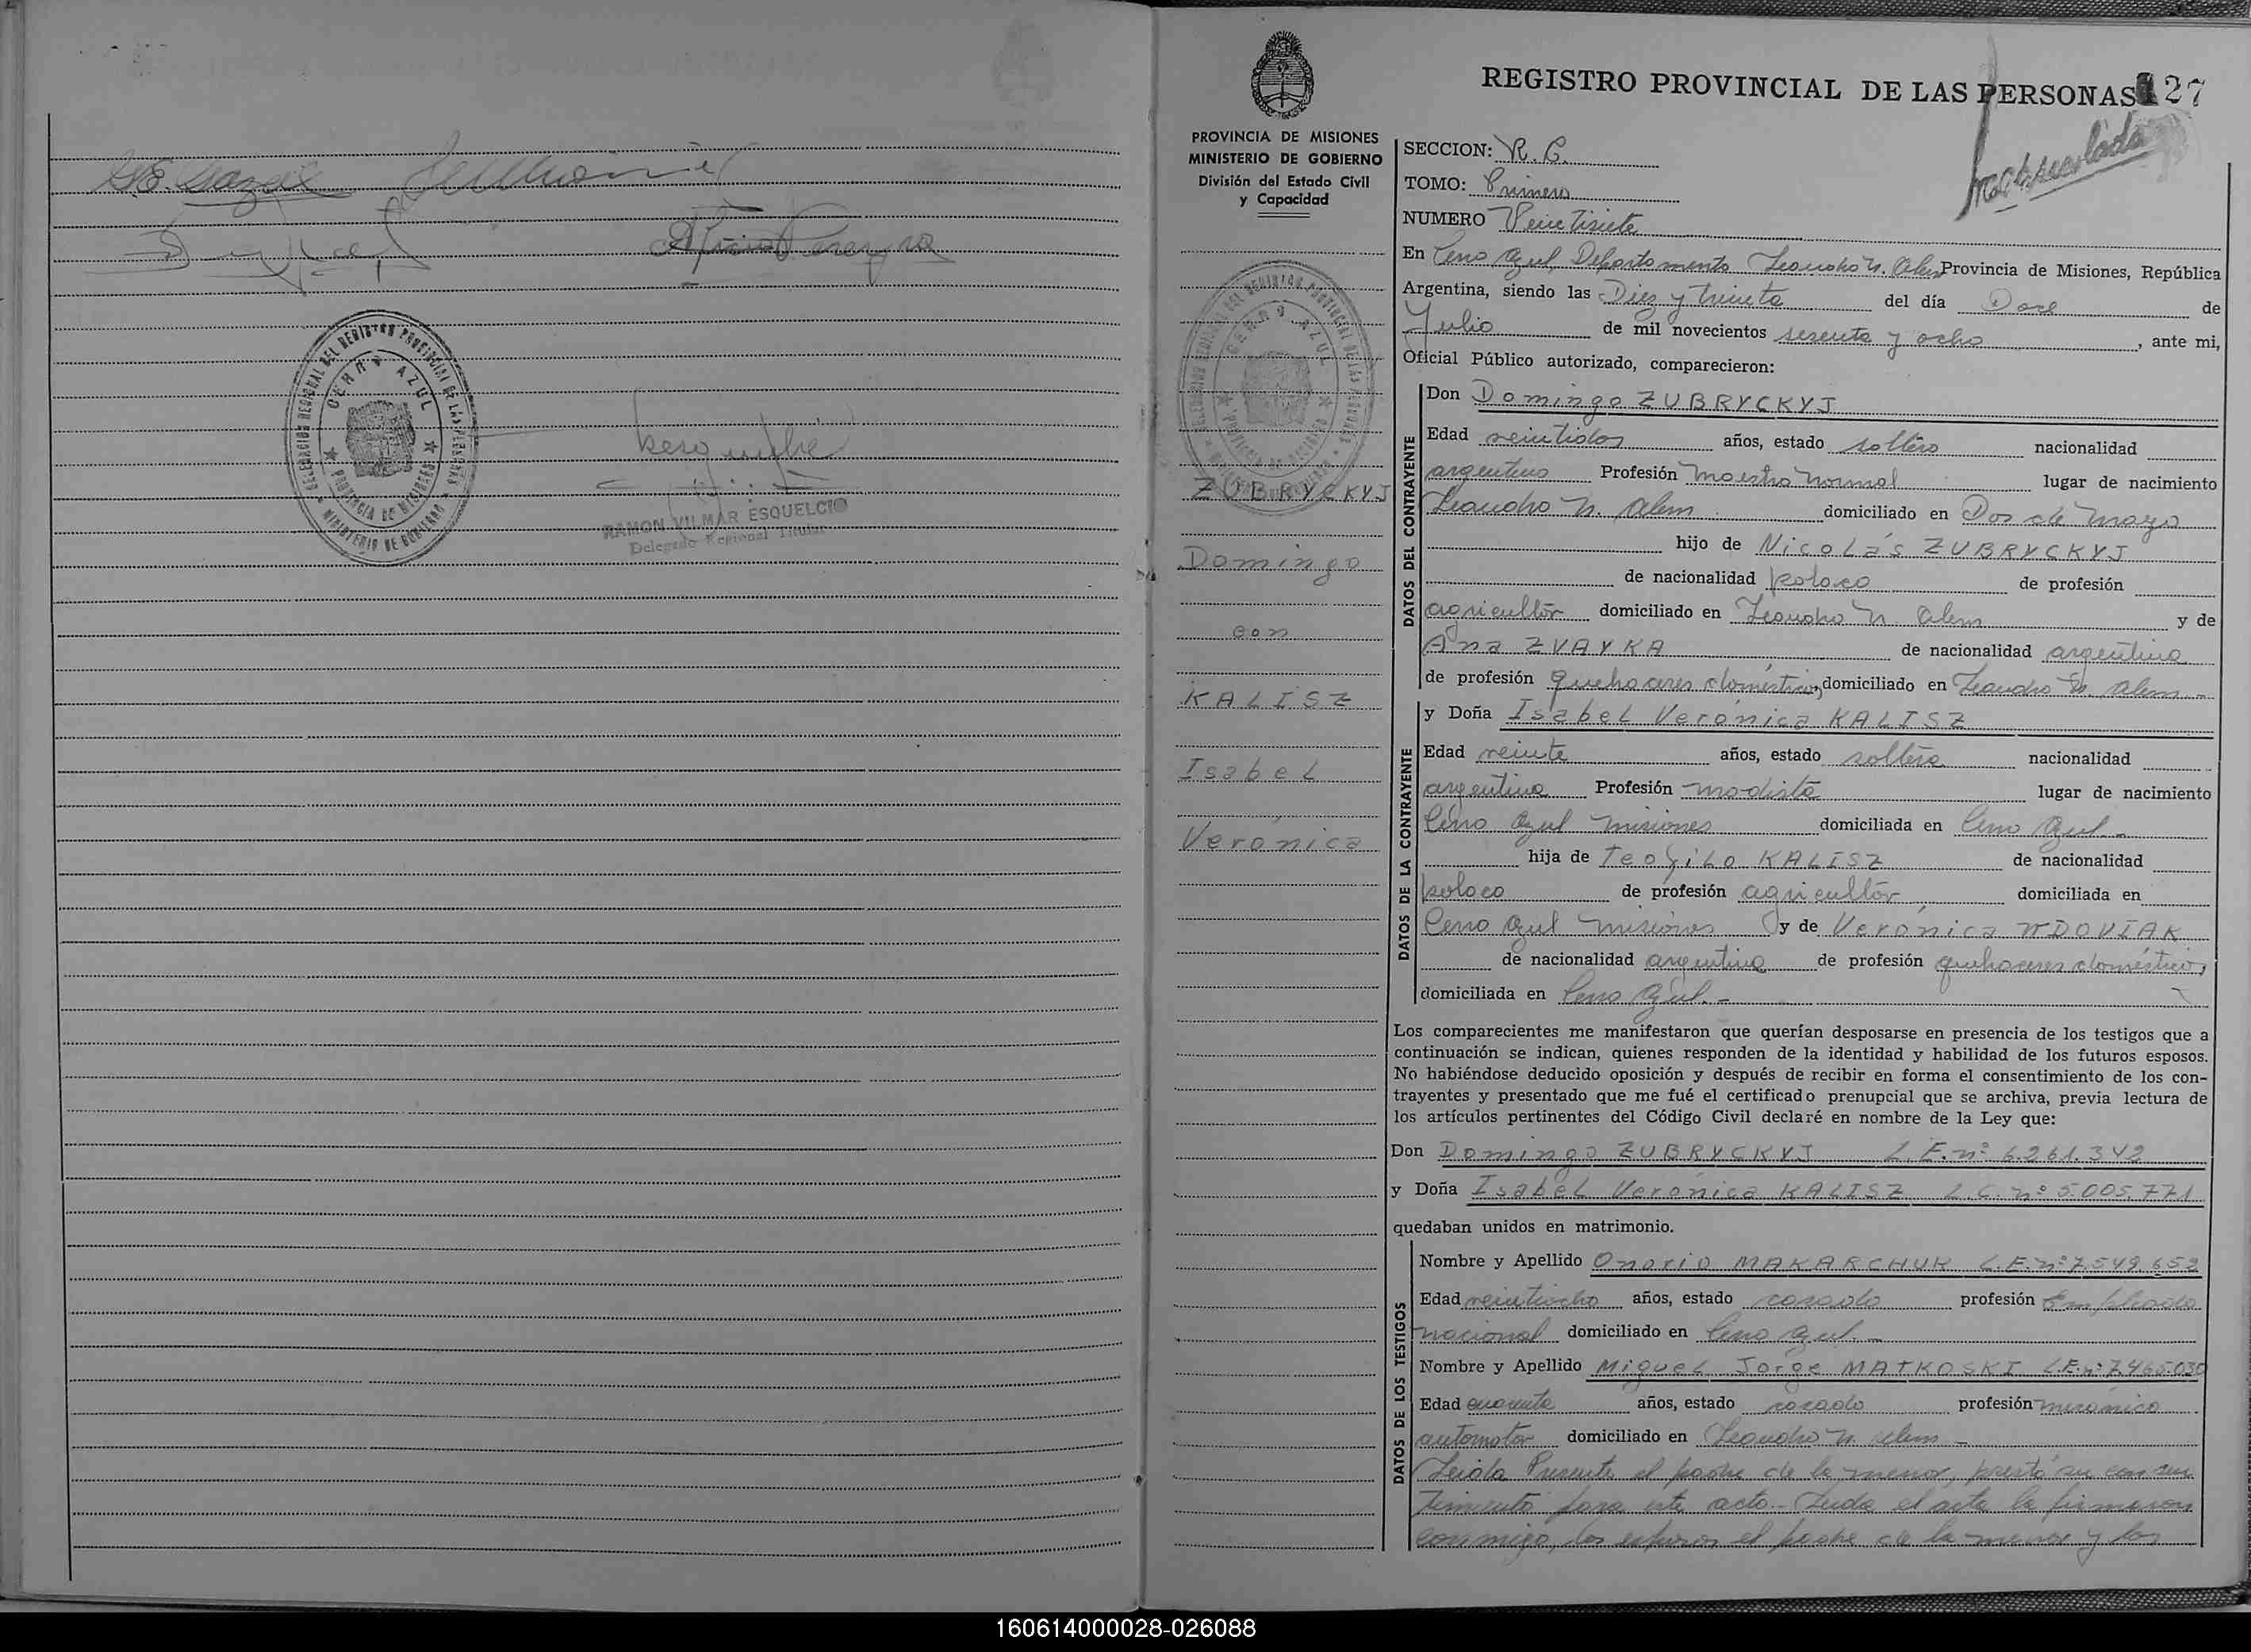 RAMON VILMAR ESQUELCIO
Delegado Regional Titular
DELEGACION REGIONAL DEL REGISTRO PROVINCIAL DE LAS PERSONAS
CERRO AZUL
PROVINCIA DE MISIONES
MINISTERIO DE GOBIERNO
PROVINCIA DE MISIONES
MINISTERIO DE GOBIERNO
División del Estado Civil
y Capacidad
ZUBRYCKYJ
Domingo
con
KALISZ
Isabel
Verónica
REGISTRO PROVINCIAL DE LAS PERSONAS 127
SECCION: R. C.
TOMO: Primero
NUMERO Veintisiete
En Cerro Azul, Departamento Leandro N. Alem Provincia de Misiones, República
Argentina, siendo las Diez y treinta del día Doce de
Julio de mil novecientos sesenta y ocho, ante mi,
Oficial Público autorizado, comparecieron:
DATOS DEL CONTRAYENTE
Don Domingo ZUBRYCKYJ
Edad veintidos años, estado soltero nacionalidad
argentino Profesión maestro normal lugar de nacimiento
Leandro N. Alem domiciliado en Dos de Mayo
hijo de Nicolás ZUBRYCKYJ
de nacionalidad polaco de profesión
agricultor domiciliado en Leandro N. Alem y de
Ana ZVAYKA de nacionalidad argentina
de profesión quehaceres domésticos, domiciliado en Leandro N. Alem
DATOS DE LA CONTRAYENTE
y Doña Isabel Verónica KALISZ
Edad veinte años, estado soltera nacionalidad
argentina Profesión modista lugar de nacimiento
Cerro Azul Misiones domiciliada en Cerro Azul.-
hija de Teofilo KALISZ de nacionalidad
polaco de profesión agricultor domiciliada en
Cerro Azul Misiones y de Verónica WDOVIAK
de nacionalidad argentina de profesión quehaceres domésticos,
domiciliada en Cerro Azul.-
Los comparecientes me manifestaron que querían desposarse en presencia de los testigos que a
continuación se indican, quienes responden de la identidad y habilidad de los futuros esposos.
No habiéndose deducido oposición y después de recibir en forma el consentimiento de los con-
trayentes y presentado que me fué el certificado prenupcial que se archiva, previa lectura de
los artículos pertinentes del Código Civil declaré en nombre de la Ley que:
Don Domingo ZUBRYCKYJ L.E. nº 6.261.342
y Doña Isabel Verónica KALISZ L.C. nº 5.005.771
quedaban unidos en matrimonio.
DATOS DE LOS TESTIGOS
Nombre y Apellido Onorio MAKARCHUK L.E. nº 7.549.652
Edad veintiocho años, estado casado profesión Empleado
nacional domiciliado en Cerro Azul.-
Nombre y Apellido Miguel Jorge MATKOSKI L.E. nº 7.465.030
Edad cuarenta años, estado casado profesión mecánico
automotor domiciliado en Leandro N. Alem -
Leida Presente el padre de la menor, prestó su consen
timiento para este acto.- Leida el acta la firmaron
conmigo, los esposos el padre de la menor y los
160614000028-026088